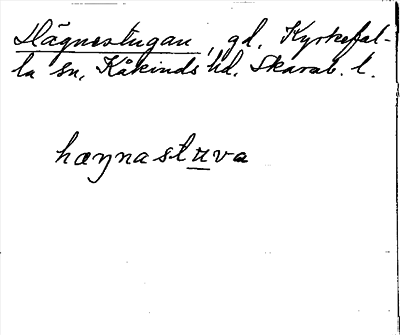 Hägnestugan, gd. Kyrkefal-
la sn. Kåkinds hd. Skarab. l.
hæŋnastuva